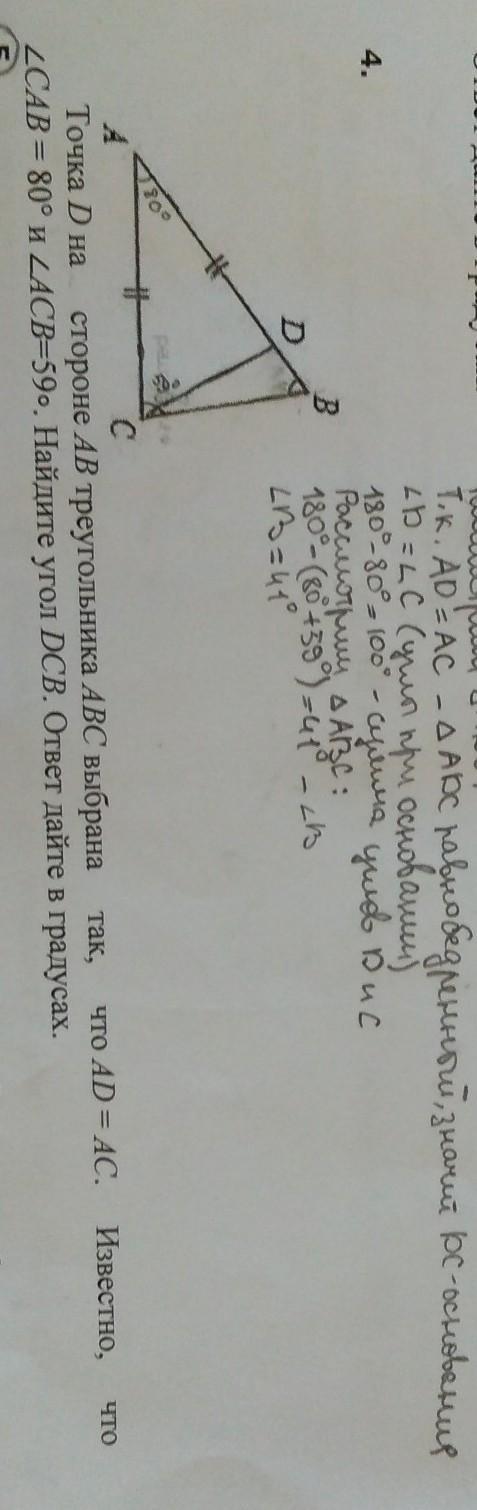 4.
Т.к. AD = AC – △ ADC равнобедренный, значит DC-основание
∠D = ∠C (углы при основании)
180° - 80° = 100° - сумма углов D и C
Рассмотрим △ ABC:
180° - (80° + 59°) = 41° - ∠B
∠B = 41°
B
D
80°
A
C
Точка D на стороне AB треугольника ABC выбрана так, что AD = AC. Известно, что
∠CAB = 80° и ∠ACB=59°. Найдите угол DCB. Ответ дайте в градусах.
5